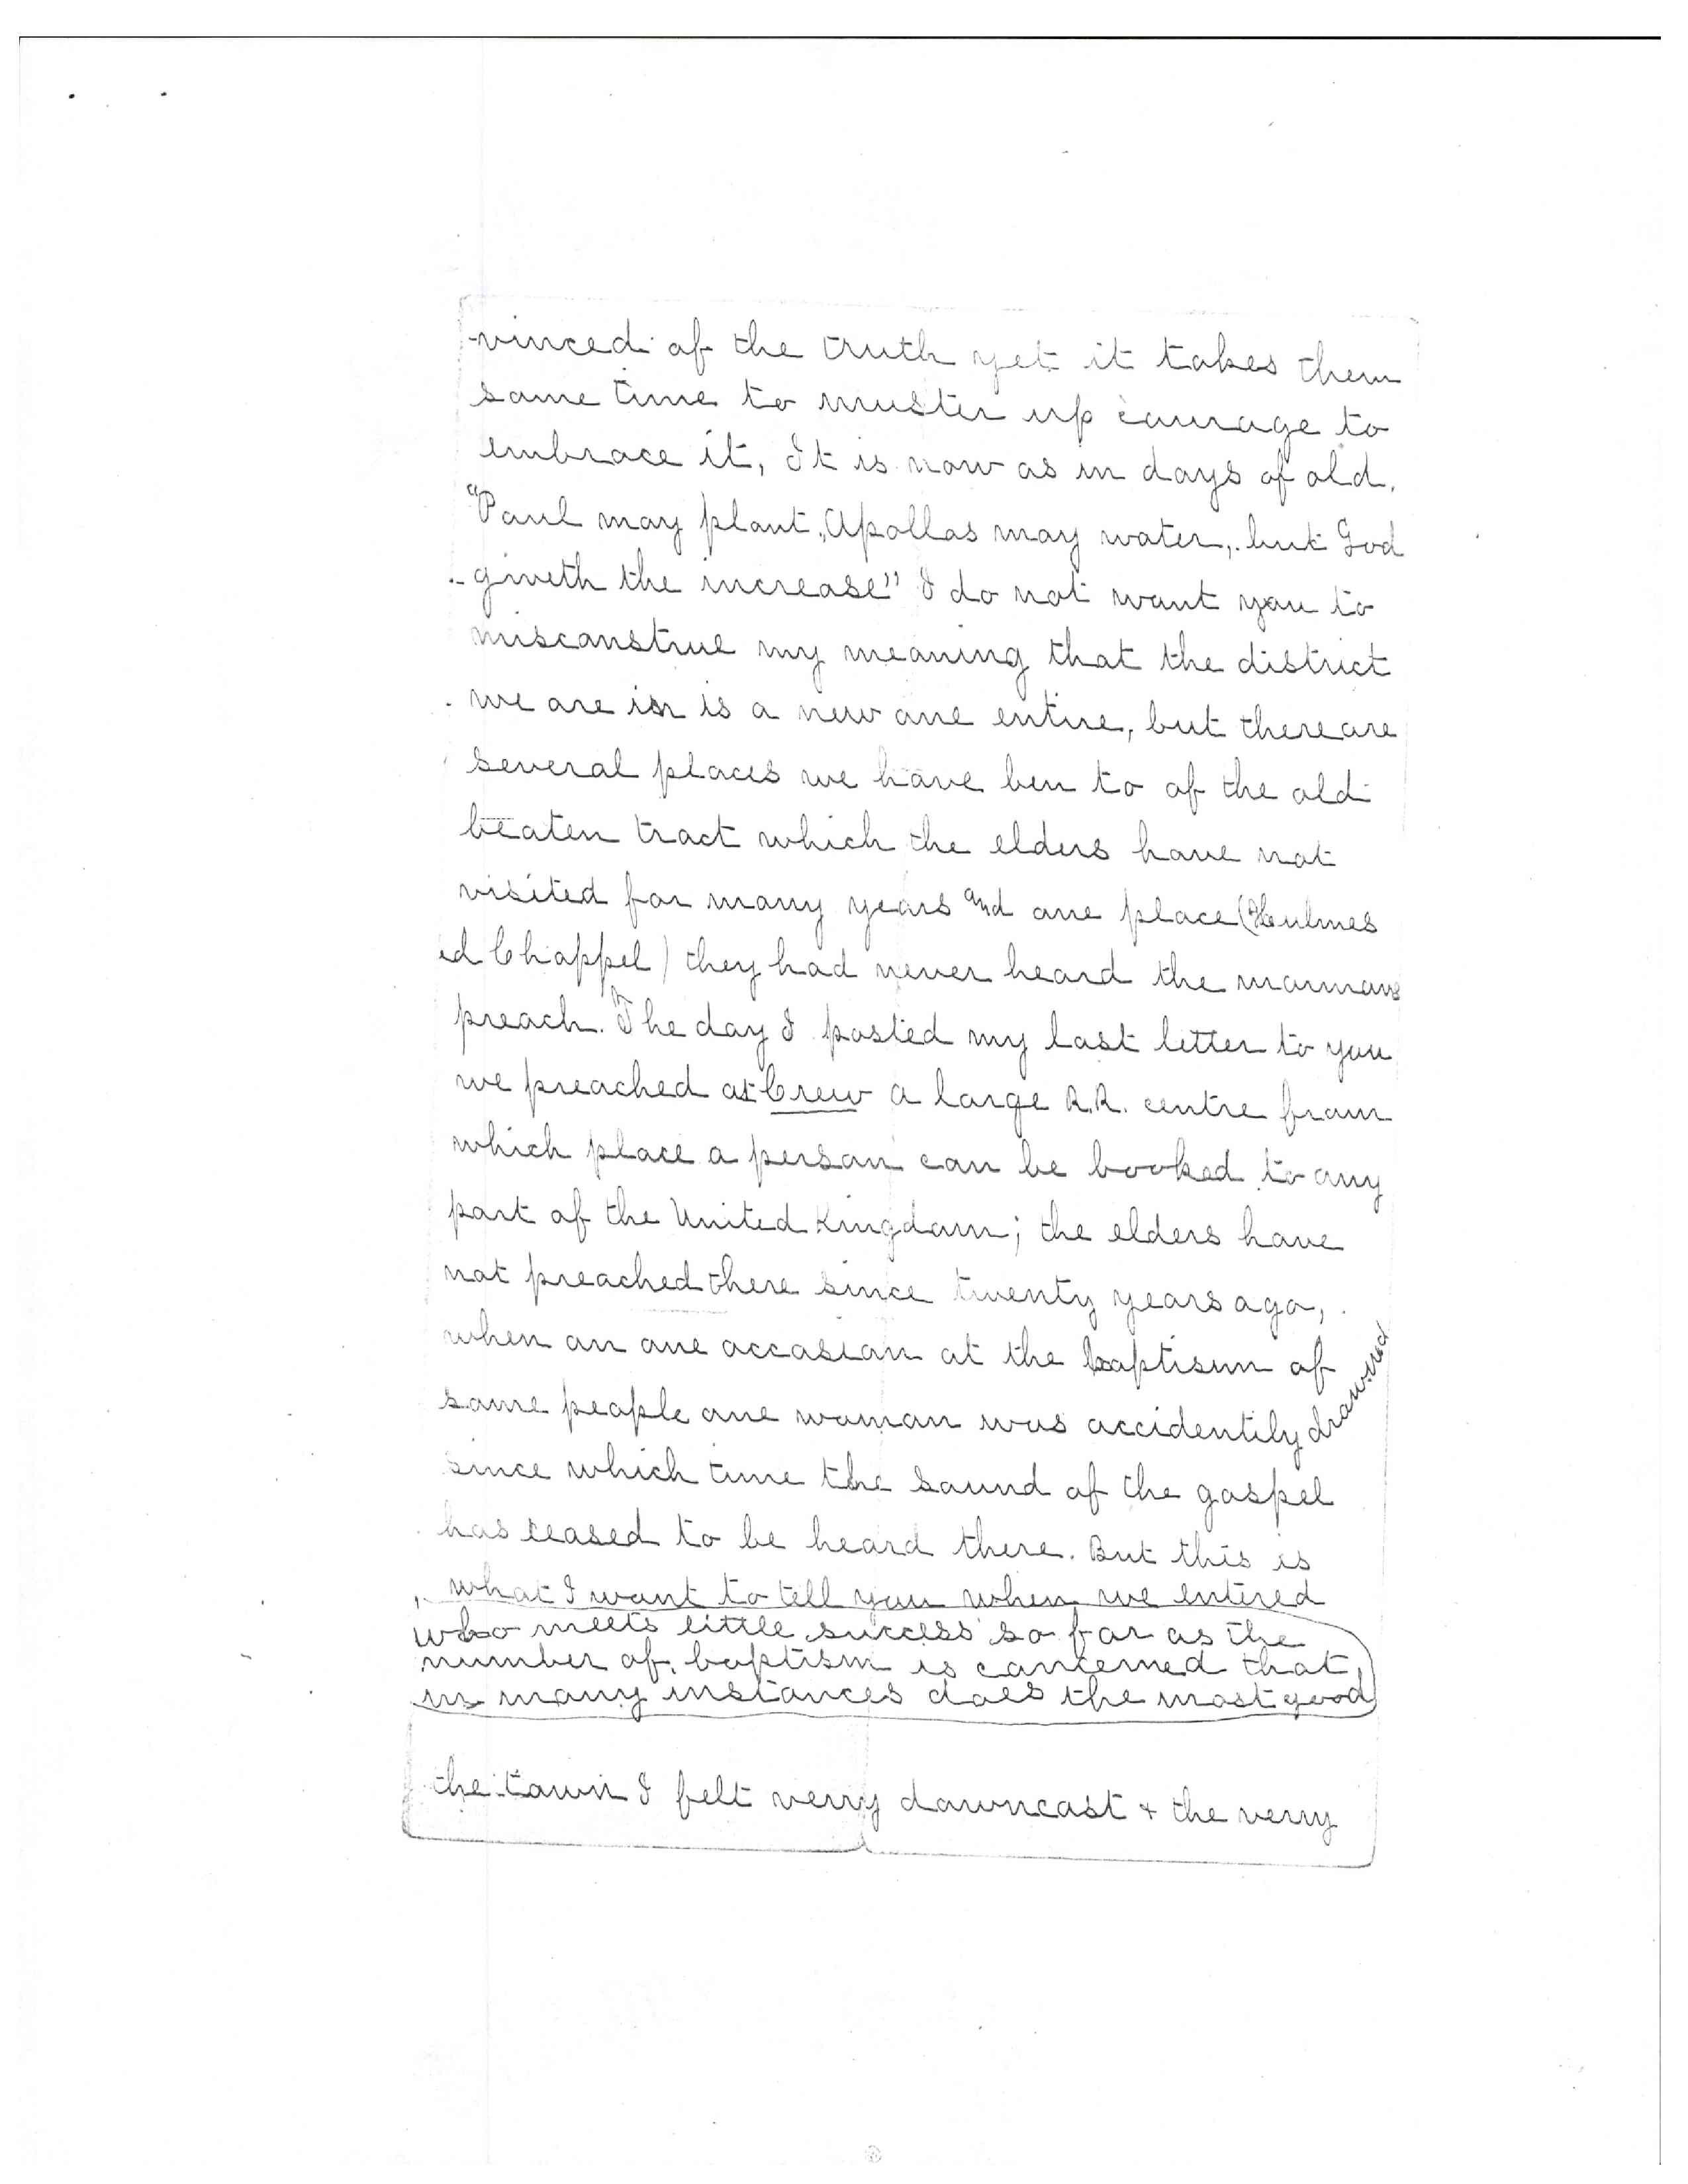 -vinced of the truth yet it takes them
some time to muster up courage to
embrace it, It is now as in days of old.
"Paul may plant, Apollos may water, but God
giveth the increase" I do not want you to
misconstrue my meaning that the district
we are in is a new one entire, but there are
several places we have ben to of the old
beaten tract which the elders have not
visited for many years and one place (Hulmes
ed Chappel) they had never heard the mormons
preach. The day I posted my last letter to you
we preached at Crew a large R.R. centre from
which place a person can be booked to any
part of the United Kingdom; the elders have
not preached there since twenty years ago,
when on one occasion at the baptism of
some people one woman was accidentily drownred
since which time the sound of the gospel
has ceased to be heard there. But this is
what I want to tell you when we entired
who meets little success so far as the
number of baptism is concerned that,
in many instances does the most good
the town I felt verry downcast + the verry